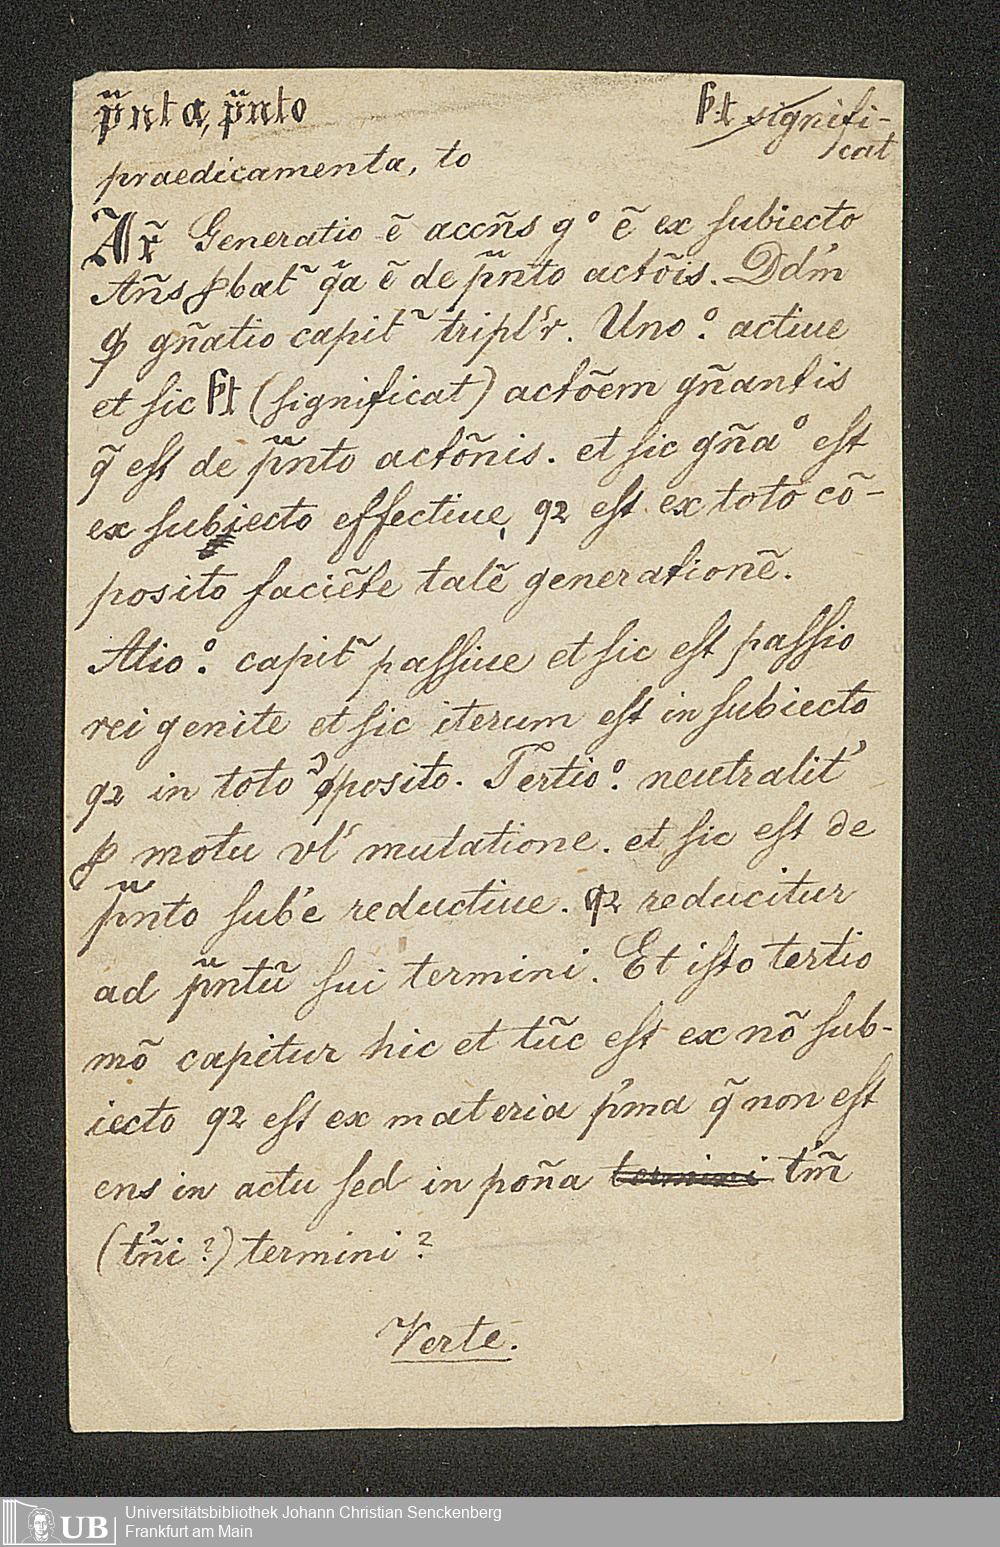 p̃nta, p̃nto
ſt signifi-
cat
praedicamenta, to
Ar̃ Generatio ẽ accñs g° ẽ ex ſubiecto
Añs ꝓbat᷉ q̃a ẽ de p̃nto actõis. Ddm̓
ꝙ gñatio capit᷉ tripl'r. Uno°. actiue
et ſic ſt (ſignificat) actõem gñantis
q̃ eſt de p̃nto actõnis. et ſic gña° eſt
ex ſubiecto effectiue, qꝛ eſt ex toto cõ-
posito faciẽte talẽ generationẽ.
Alio°. capit᷉ paſſiue et ſic eſt paſſio
rei genite et ſic iterum eſt in ſubiecto
qꝛ in toto ꝯpposito. Tertio°. neutralit'
ꝓ motu vl' mutatione. et ſic eſt de
p̃nto ſub'e reductiue. qꝛ reducitur
ad p̃ntũ ſui termini. Et iſto tertio
mõ capitur hic et tũc eſt ex nõ ſub-
iecto qꝛ eſt ex materia p'ma q̃ non eſt
ens in actu ſed in poña termini t'm̃
(t'ñi?) termini?
Verte.
Universitätsbibliothek Johann Christian Senckenberg
Frankfurt am Main
UB